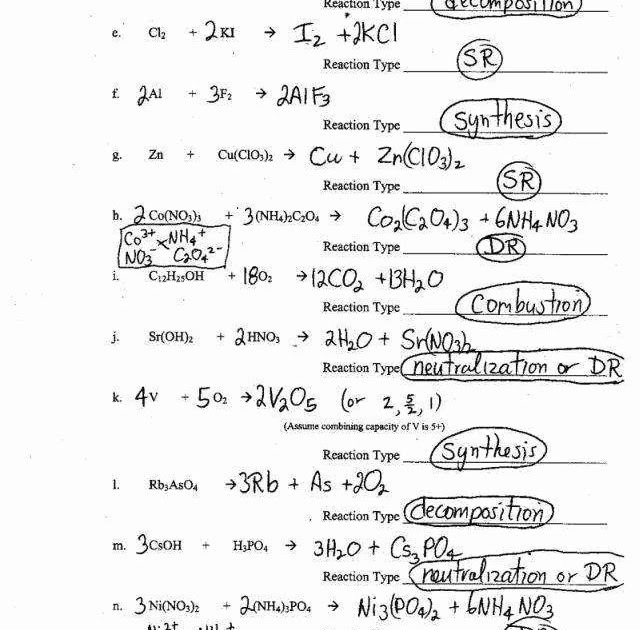 Reaction Type decomposition
e. Cl₂ + 2KI → I₂ + 2KCl
Reaction Type SR
f. 2Al + 3F₂ → 2AlF₃
Reaction Type Synthesis
g. Zn + Cu(ClO₃)₂ → Cu + Zn(ClO₃)₂
Reaction Type SR
h. 2Co(NO₃)₃ + 3(NH₄)₂C₂O₄ → Co₂(C₂O₄)₃ + 6NH₄NO₃
Co³⁺ NH₄⁺
NO₃⁻ C₂O₄²⁻
Reaction Type DR
i. C₁₂H₂₅OH + 18O₂ → 12CO₂ + 13H₂O
Reaction Type Combustion
j. Sr(OH)₂ + 2HNO₃ → 2H₂O + Sr(NO₃)₂
Reaction Type neutralization or DR
k. 4V + 5O₂ → 2V₂O₅ (or 2, 5/2, 1)
(Assume combining capacity of V is 5+)
Reaction Type Synthesis
l. Rb₃AsO₄ → 3Rb + As + 2O₂
Reaction Type decomposition
m. 3CsOH + H₃PO₄ → 3H₂O + Cs₃PO₄
Reaction Type neutralization or DR
n. 3Ni(NO₃)₂ + 2(NH₄)₃PO₄ → Ni₃(PO₄)₂ + 6NH₄NO₃